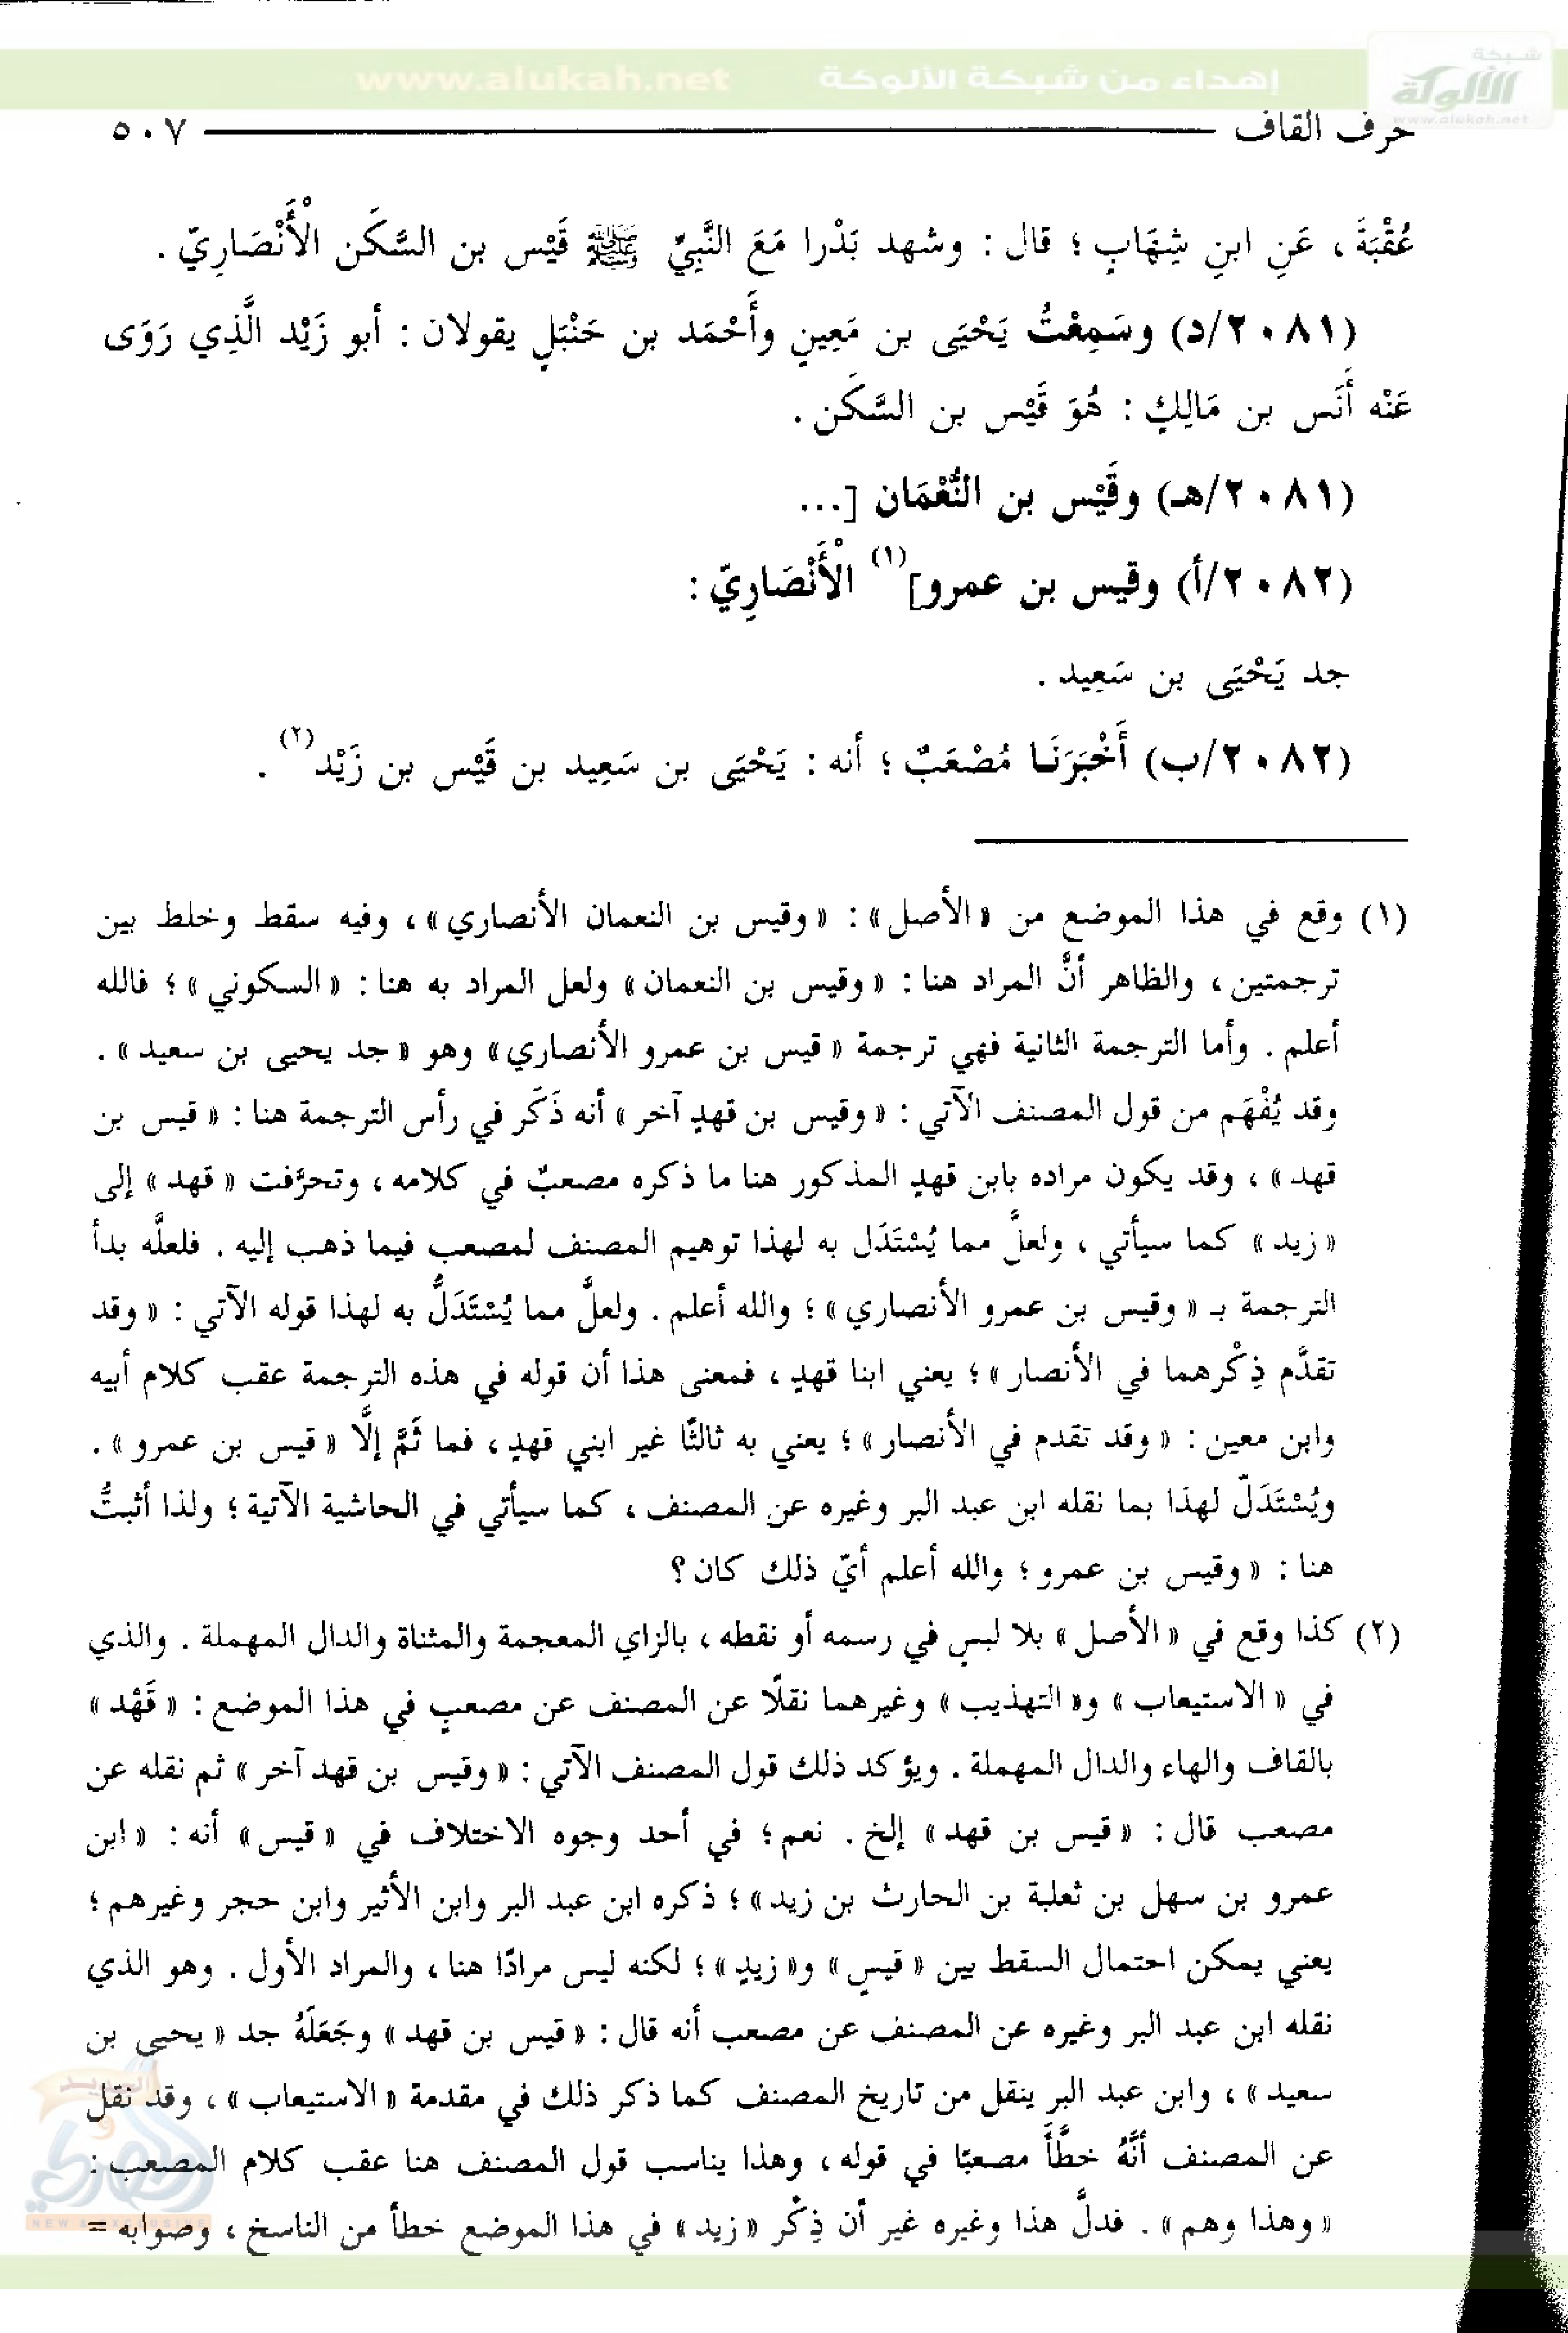 شبكة
الألوكة
www.alukah.net
إهداء من شبكة الألوكة
www.alukah.net
حرف القاف ٥٠٧
عُقْبَةَ ، عَنِ ابنِ شِهَابٍ ؛ قال : وشهد بَدْرا مَعَ النَّبِيِّ ﷺ قَيْس بن السَّكَن الْأَنْصَارِيّ .
(٢٠٨١/د) وسَمِعْتُ يَحْيَى بن مَعِينٍ وأَحْمَد بن حَنْبَلٍ يقولان : أبو زَيْد الَّذِي رَوَى
عَنْه أَنَس بن مَالِكٍ : هُوَ قَيْس بن السَّكَن .
(٢٠٨١/هـ) وقَيْس بن النُّعْمَان [...
(٢٠٨٢/أ) وقيس بن عمرو](١) الْأَنْصَارِيّ :
جد يَحْيَى بن سَعِيد .
(٢٠٨٢/ب) أَخْبَرَنَا مُصْعَبٌ ؛ أنه : يَحْيَى بن سَعِيد بن قَيْس بن زَيْد(٢) .
(١) وقع في هذا الموضع من «الأصل» : «وقيس بن النعمان الأنصاري» ، وفيه سقط وخلط بين
ترجمتين ، والظاهر أنَّ المراد هنا : «وقيس بن النعمان» ولعل المراد به هنا : «السكوني» ؛ فالله
أعلم . وأما الترجمة الثانية فهي ترجمة «قيس بن عمرو الأنصاري» وهو «جد يحيى بن سعيد» .
وقد يُفْهَم من قول المصنف الآتي : «وقيس بن قهدٍ آخر» أنه ذَكَر في رأس الترجمة هنا : «قيس بن
قهد» ، وقد يكون مراده بابن قهدٍ المذكور هنا ما ذكره مصعبٌ في كلامه ، وتحرَّفت «قهد» إلى
«زيد» كما سيأتي ، ولعلَّ مما يُسْتَدَل به لهذا توهيم المصنف لمصعب فيما ذهب إليه . فلعلَّه بدأ
الترجمة بـ «وقيس بن عمرو الأنصاري» ؛ والله أعلم . ولعلَّ مما يُسْتَدَلُّ به لهذا قوله الآتي : «وقد
تقدَّم ذِكْرهما في الأنصار» ؛ يعني ابنا قهدٍ ، فمعنى هذا أن قوله في هذه الترجمة عقب كلام أبيه
وابن معين : «وقد تقدم في الأنصار» ؛ يعني به ثالثًا غير ابني قهدٍ ، فما ثَمَّ إلَّا «قيس بن عمرو» .
ويُسْتَدَلّ لهذا بما نقله ابن عبد البر وغيره عن المصنف ، كما سيأتي في الحاشية الآتية ؛ ولذا أثبتُّ
هنا : «وقيس بن عمرو ؛ والله أعلم أيّ ذلك كان ؟
(٢) كذا وقع في «الأصل» بلا لبسٍ في رسمه أو نقطه ، بالزاي المعجمة والمثناة والدال المهملة . والذي
في «الاستيعاب» و«التهذيب» وغيرهما نقلًا عن المصنف عن مصعبٍ في هذا الموضع : «قَهْد»
بالقاف والهاء والدال المهملة . ويؤكد ذلك قول المصنف الآتي : «وقيس بن قهد آخر» ثم نقله عن
مصعب قال : «قيس بن قهد» إلخ . نعم ؛ في أحد وجوه الاختلاف في «قيس» أنه : «ابن
عمرو بن سهل بن ثعلبة بن الحارث بن زيد» ؛ ذكره ابن عبد البر وابن الأثير وابن حجر وغيرهم ؛
يعني يمكن احتمال السقط بين «قيسٍ» و«زيدٍ» ؛ لكنه ليس مرادًا هنا ، والمراد الأول . وهو الذي
نقله ابن عبد البر وغيره عن المصنف عن مصعب أنه قال : «قيس بن قهد» وجَعَلَهُ جد «يحيى بن
سعيد» ، وابن عبد البر ينقل من تاريخ المصنف كما ذكر ذلك في مقدمة «الاستيعاب» ، وقد نقل
عن المصنف أنَّهُ خطَّأَ مصعبًا في قوله ، وهذا يناسب قول المصنف هنا عقب كلام المصعب :
«وهذا وهم» . فدلَّ هذا وغيره غير أن ذِكْر «زيد» في هذا الموضع خطأ من الناسخ ، وصوابه =
NEW & EXCLUSIVE